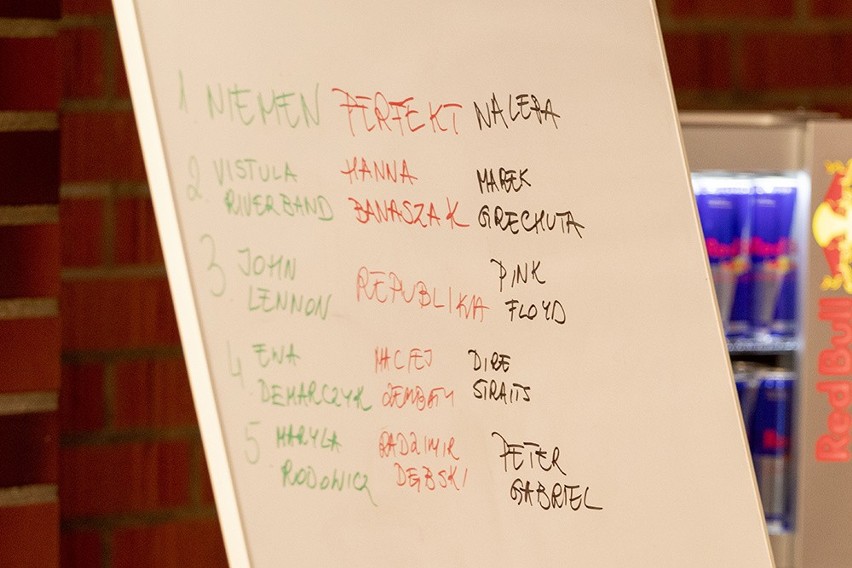 1. NIEMEN PERFEKT NALEPA
2. VISTULA HANNA MAREK
RIVERBAND BANASZAK GRECHUTA
3. JOHN REPUBLIKA PINK
LENNON FLOYD
4 EWA MACIEJ DIRE
DEMARCZYK ZEMBATY STRAITS
5 MARYLA RADZIMIR PETER
RODOWICZ DĘBSKI GABRIEL
Red Bull